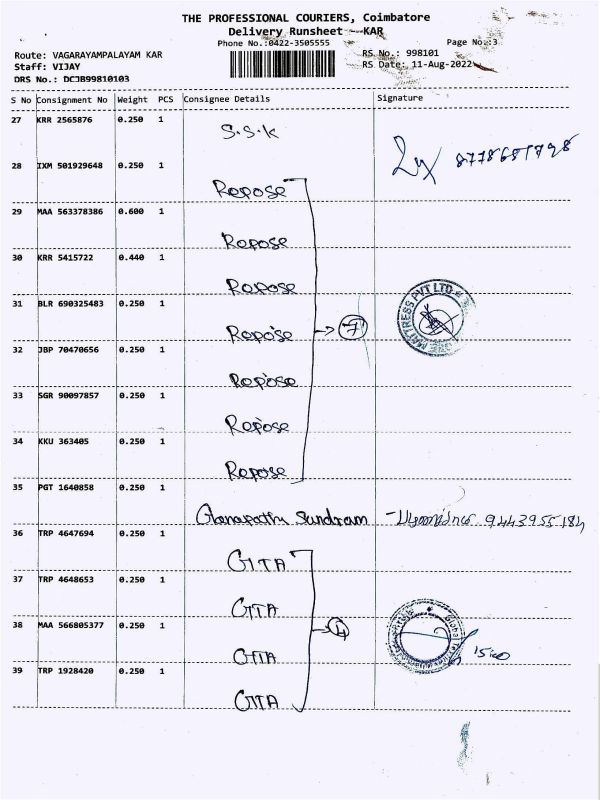 THE PROFESSIONAL COURIERS, Coimbatore
Delivery Runsheet - KAR
Phone No.:0422-3505555
Page No.:3
Route: VAGARAYAMPALAYAM KAR
RS No.: 998101
Staff: VIJAY
RS Date: 11-Aug-2022
DRS No.: DCJB99810103
S No Consignment No Weight PCS Consignee Details Signature
27 KRR 2565876 0.250 1
S.S.K
28 IXM 501929648 0.250 1
Repose
29 MAA 563378386 0.600 1
Repose
30 KRR 5415722 0.440 1
Repose
31 BLR 690325483 0.250 1
Repose → 7
MATTRESS PVT LTD
32 JBP 70470656 0.250 1
Repose
33 SGR 90097857 0.250 1
Repose
34 KKU 363405 0.250 1
Repose
35 PGT 1640858 0.250 1
Sundram 9443955184
36 TRP 4647694 0.250 1
GTTA
37 TRP 4648653 0.250 1
GTTA
38 MAA 566805377 0.250 1
→ 4
Global
GTTA
39 TRP 1928420 0.250 1
GTTA